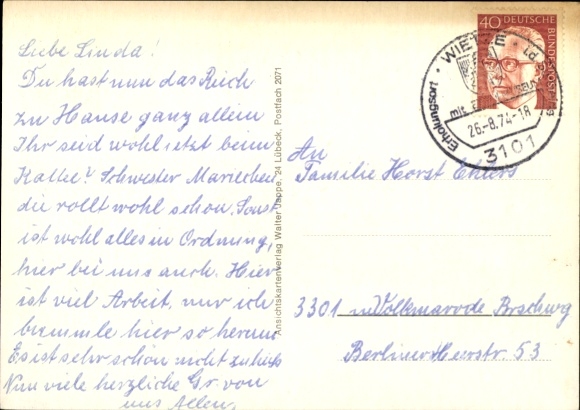 Liebe Linda!
Du hast nun das Reich
zu Hause ganz allein
Ihr seid wohl jetzt beim
Kaffee? Schwester Mariechen
die rollt wohl schon. Sonst
ist wohl alles in Ordnung,
hier bei uns auch. Hier
ist viel Arbeit, nur ich
bummle hier so herum
Es ist sehr schön nicht zu heiß
Nun viele herzliche Gr. von
uns Allen.
Ansichtskartenverlag Walter Jappe, 24 Lübeck, Postfach 2071
40 DEUTSCHE BUNDESPOST
WIETZE
Erholungsort
mit
26.-8.74-18
3101
An
Familie Horst Ehlers
3301 Volkmarode Brschwg
Berliner Heerstr. 53